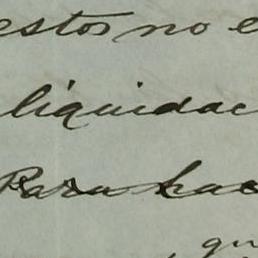 estos no e
liquidac
Para hac
qu